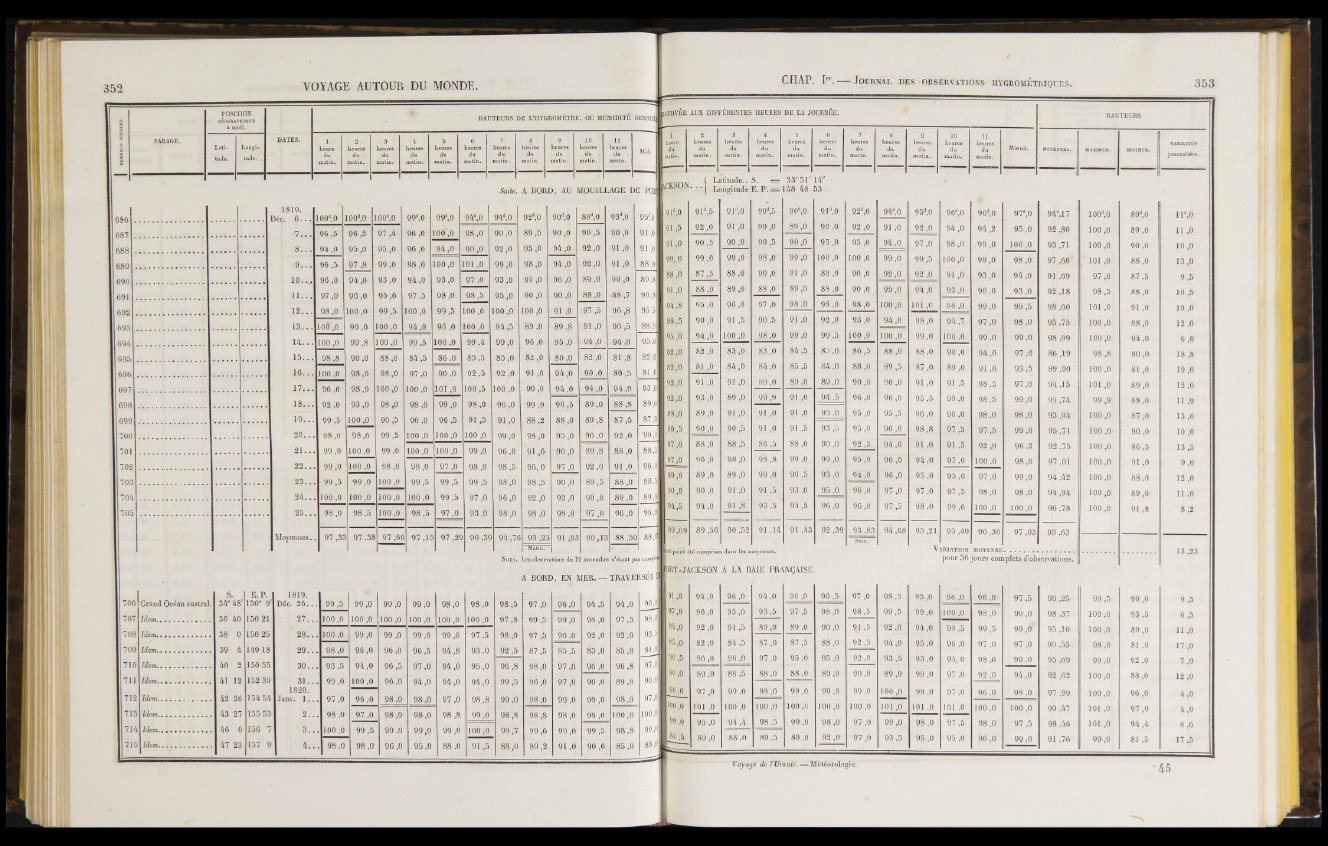 352
VOYAGE AUTOUR DU MONDE.
NUMÉROS
PARAGE.
POSITION
GÉOGRAPHIQUE
à midi.
Lati-
tude.
Longi-
tude.
DATES.
HAUTEURS DE L'HYGROMÈTRE, OU HUMIDITÉ
1 heure du matin.
2 heures du matin.
3 heures du matin.
4 heures du matin.
5 heures du matin.
6 heures du matin.
7 heures du matin.
8 heures du matin.
9 heures du matin.
10 heures du matin.
11 heures du matin.
Midi.
Suite. A BORD, AU MOUILLAGE DE
1819.
686 Déc. 6... 100d,0 100d,0 100d,0 99d,0 99d,0 94d,0 94d,0 92d,0 90d,0 89d,0 93d,0
687 7... 96,5 96,5 97,4 96,0 100,0 98,0 90,0 89,5 90,0 90,5 90,0
688 8... 94,0 95,0 95,0 96,0 94,0 90,0 92,0 95,0 94,0 92,0 91,0
689 9... 96,5 97,8 99,0 98,0 100,0 101,0 99,0 98,0 94,0 92,0 91,0
690 10... 96,0 94,0 93,0 94,0 93,0 97,0 93,0 91,0 96,0 89,0 90,0
691 11... 97,0 96,0 95,0 97,5 98,0 98,5 95,0 96,0 90,0 88,0 88,7
692 12... 98,0 100,0 99,5 100,0 99,5 100,0 100,0 100,0 91,0 97,5 96,8
693 13... 100,0 99,0 100,0 94,0 96,0 100,0 94,5 89,0 89,8 91,0 90,5
694 14... 100,0 99,8 100,0 99,5 100,0 99,4 99,0 96,0 95,0 94,0 94,0
695 15... 98,8 90,0 88,0 84,5 86,0 85,5 85,0 82,0 80,0 82,0 81,8
696 16... 100,0 98,0 98,0 97,0 96,0 92,5 92,0 91,0 94,0 90,0 89,5
697 17... 96,0 98,0 100,0 100,0 101,0 100,5 100,0 90,0 94,0 94,0 94,0
698 18... 92,0 93,0 98,0 98,0 99,0 98,0 96,0 99,0 90,5 89,0 88,8
699 19... 99,5 100,0 96,5 96,0 96,5 91,5 91,0 88,2 88,0 89,8 87,5
700 20... 98,0 98,6 99,5 100,0 100,0 100,0 99,0 98,0 95,0 96,0 92,0
701 21... 99,0 100,0 99,0 100,0 100,0 99,0 96,0 91,6 90,0 89,8 88,0
702 22... 99,0 100,0 98,0 98,0 97,0 98,0 98,5 96,0 97,0 92,0 91,0
703 23... 99,5 99,0 100,0 99,5 99,5 99,5 98,0 98,5 90,0 89,5 88,0
704 24... 100,0 100,0 100,0 100,0 99,5 97,0 96,0 92,0 92,0 90,0 89,0
705 25... 98,0 98,5 100,0 98,5 97,0 93,0 98,0 98,0 98,0 97,0 96,0
Moyennes.. 97,33 97,38 97,60 97,15 97,29 96,39 94,76 93,23 91,03 90,13 88,50
Matin.
NOTA. Les observations du 19 novembre n'étant pas
A BORD, EN MER. — TRAVERSÉE
S. E. P. 1819.
706 Grand Océan austral. 34° 48' 150° 9' Déc. 26... 99,5 99,0 99,0 99,0 98,0 98,0 98,5 97,0 96,0 94,5 94,0
707 Idem 36 40 150 21 27... 100,0 100,0 100,0 100,0 100,0 100,0 97,8 99,5 99,0 98,0 97,5
708 Idem 38 0 150 25 28... 100,0 99,0 99,0 99,0 99,0 97,5 98,0 97,5 96,0 92,0 92,0
709 Idem 39 4 149 18 29... 98,0 96,0 96,0 96,5 94,8 93,0 92,5 87,5 85,5 83,0 85,0
710 Idem 40 2 150 55 30... 93,5 94,0 96,5 97,0 94,0 95,0 96,8 98,0 97,0 96,0 96,8
711 Idem 41 12 152 39 31... 99,0 100,0 96,0 94,0 94,0 94,0 99,5 96,0 97,0 90,0 89,0
1820.
712 Idem 42 26 154 54 Janv. 1... 97,0 96,0 98,0 98,0 97,0 98,8 99,0 98,0 99,0 99,0 98,0
713 Idem 43 27 155 53 2... 98,0 97,0 98,0 98,0 98,8 99,0 98,8 98,8 98,0 99,0 100,0
714 Idem 46 0 156 7 3... 100,0 99,5 99,0 99,0 99,0 100,0 99,7 99,6 99,0 99,5 98,8
715 Idem 47 23 157 9 4... 98,0 98,0 96,0 95,0 88,0 91,5 88,0 89,2 91,0 90,0 85,0
CHAP. Ier. — JOURNAL DES OBSERVATIONS HYGROMÉTRIQUES.
353
AUX DIFFÉRENTES HEURES DE LA JOURNÉE.
HAUTEURS
1 heure du matin.
2 heures du matin.
3 heures du matin.
4 heures du matin.
5 heures du matin.
6 heures du matin.
7 heures du matin.
8 heures du matin.
9 heures du matin.
10 heures du matin.
11 heures du matin.
Minuit.
MOYENNES.
MAXIMUM.
MINIMUM.
VARIATION
journalière.
Latitude.. S. = 33° 51' 14"
Longitude E. P. = 148 48 53
91d,0 91d,5 91d,0 90d,5 90d,0 91d,0 92d,0 94d,0 95d,0 96d,0 96d,0 97d,0 94d,17 100d,0 89d,0 11d,0
91,5 92,0 91,0 90,0 89,0 90,0 92,0 91,0 92,0 94,0 94,2 95,0 92,80 100,0 89,0 11,0
91,0 90,5 90,0 90,5 90,0 95,0 95,0 94,0 97,0 98,0 99,0 100,0 93,71 100,0 90,0 10,0
99,0 99,0 99,0 98,0 99,0 100,0 100,0 99,0 99,5 100,0 99,0 98,0 97,66 101,0 88,0 13,0
88,0 87,5 88,0 90,0 91,0 89,0 90,0 92,0 92,0 91,0 93,0 94,0 91,69 97,0 87,5 9,5
91,0 88,0 89,0 88,0 89,0 88,0 90,0 95,0 94,0 93,0 90,0 93,0 92,18 98,5 88,0 10,5
94,8 95,0 96,0 97,0 98,0 95,0 98,0 100,0 101,0 98,0 99,0 99,5 98,00 101,0 91,0 10,0
88,5 90,0 91,5 90,5 91,0 92,0 93,0 94,0 98,0 94,7 97,0 98,0 93,75 100,0 88,0 12,0
95,0 94,0 100,0 98,0 99,0 99,5 100,0 100,0 99,0 100,0 99,0 99,0 98,09 100,0 94,0 6,0
82,0 82,0 83,0 83,0 84,5 85,0 86,5 88,0 88,0 90,0 94,0 97,0 86,19 98,8 80,0 18,8
82,0 81,0 84,0 84,0 85,5 84,0 88,0 89,5 87,0 89,0 91,0 93,5 89,90 100,0 81,0 19,0
92,0 91,0 91,0 89,0 89,0 89,0 90,0 90,0 91,0 91,5 98,5 97,0 94,15 101,0 89,0 12,0
92,0 93,0 89,0 99,9 91,0 94,5 96,0 96,0 95,5 99,0 98,5 99,0 94,74 99,9 88,0 11,9
88,0 89,0 91,0 91,0 91,0 93,0 95,0 95,5 96,0 96,0 98,0 98,0 93,04 100,0 87,0 13,0
90,5 90,0 90,5 91,0 91,5 93,5 95,0 96,0 98,8 97,5 97,5 99,0 95,71 100,0 90,0 10,0
87,0 88,0 88,5 86,5 88,0 90,0 92,5 94,0 91,0 91,5 92,0 96,2 92,75 100,0 86,5 13,5
97,0 96,0 98,0 98,8 99,0 99,0 95,0 96,0 94,0 97,0 100,0 98,0 97,01 100,0 91,0 9,0
89,0 89,0 89,0 90,0 90,5 93,0 94,0 96,0 95,0 95,0 97,0 99,0 94,42 100,0 88,0 12,0
90,0 90,0 91,0 91,5 93,0 95,0 96,0 97,0 97,0 97,5 98,0 98,0 94,04 100,0 89,0 11,0
94,5 94,0 91,8 93,5 94,5 96,0 96,0 97,5 98,0 99,0 100,0 100,0 96,78 100,0 91,8 8,2
89,09 89,56 90,52 91,14 91,43 92,39 93,83 94,68 95,21 95,49 96,36 97,03 93,63
Soir.
point été comprises dans les moyennes.
VARIATION MOYENNE
pour 56 jours complets d'observations. 13,23
PORT-JACKSON A LA BAIE FRANÇAISE.
91,0 94,0 96,0 94,0 96,0 96,5 97,0 98,5 95,0 96,0 96,0 97,5 96,25 99,5 90,0 9,5
97,0 96,0 95,0 93,5 97,5 98,0 98,5 99,5 99,0 100,0 98,0 99,0 98,37 100,0 93,5 6,5
94,0 92,0 91,5 89,0 89,0 90,0 91,5 92,0 94,0 99,5 99,5 99,0 95,10 100,0 89,0 11,0
85,0 82,0 84,5 87,0 87,5 88,0 92,5 94,0 95,0 96,0 97,0 97,0 90,55 98,0 81,0 17,0
96,5 96,0 96,0 97,0 95,0 95,0 92,0 93,5 93,0 94,0 98,0 99,0 95,09 99,0 92,0 7,0
90,0 89,0 88,5 88,0 88,0 89,0 90,0 89,0 90,0 97,0 92,0 94,0 92,62 100,0 88,0 12,0
96,0 97,0 99,0 98,0 99,0 99,0 99,0 100,0 99,0 97,0 96,0 98,0 97,99 100,0 96,0 4,0
100,0 101,0 100,0 100,0 100,0 100,0 100,0 101,0 101,0 101,0 100,0 100,0 99,47 101,0 97,0 4,0
99,0 95,0 94,4 98,5 99,0 98,0 97,0 99,0 98,0 97,5 98,0 97,5 98,46 101,0 94,4 6,6
81,5 89,0 88,0 89,5 89,0 92,0 97,0 93,5 95,0 95,0 96,0 99,0 91,76 99,0 81,5 17,5
Voyage de l'Uranie. — Météorologie.
45